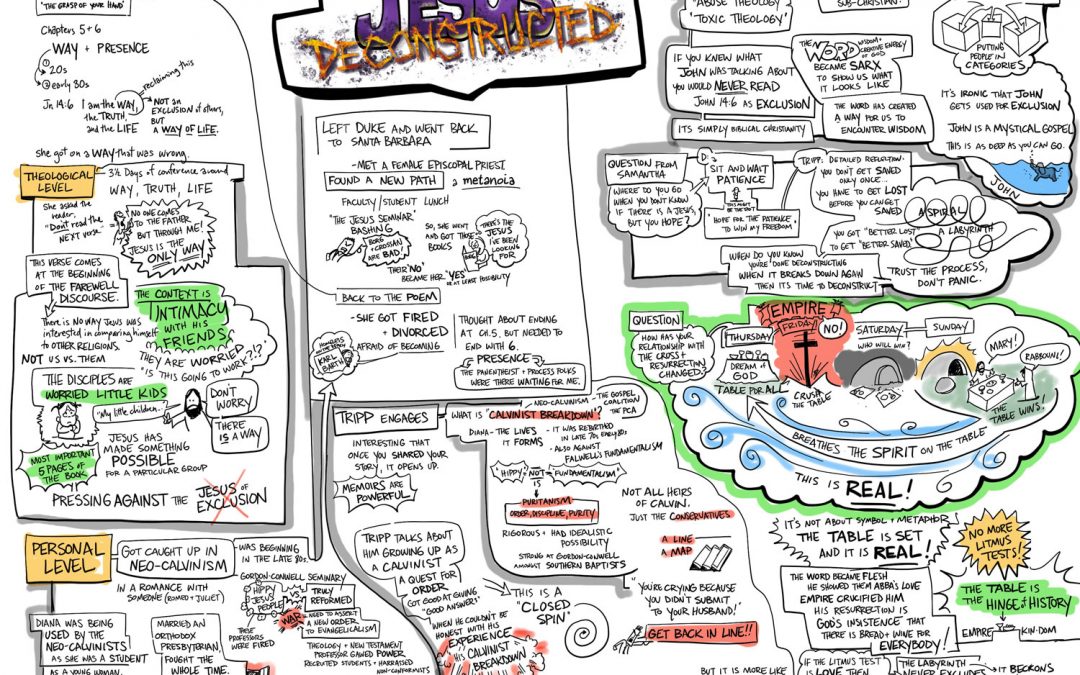 'THE GRASP OF YOUR HAND'
Chapters 5 + 6
WAY + PRESENCE
20s
early 30s
reclaiming this
Jn 14:6 I am the WAY,
the TRUTH,
and the LIFE
NOT an
EXCLUSION of others,
BUT
a WAY OF LIFE.
She got on a WAY that was wrong.
THEOLOGICAL
LEVEL
3½ Days of conference around
WAY, TRUTH, LIFE
She asked the
reader,
"Don't read the
NEXT verse."
NO ONE COMES
TO THE FATHER
BUT THROUGH ME!
JESUS IS THE
ONLY WAY
THIS VERSE COMES
AT THE BEGINNING
OF THE FAREWELL
DISCOURSE.
THE CONTEXT IS
INTIMACY
WITH HIS
FRIENDS
There is NO WAY JESUS WAS
interested in comparing himself
to OTHER RELIGIONS.
NOT US VS. THEM
THEY ARE WORRIED
"IS THIS GOING TO WORK?!?"
THE DISCIPLES ARE
WORRIED LITTLE KIDS
"My little children..."
DON'T
WORRY
THERE
IS A WAY
JESUS HAS
MADE SOMETHING
POSSIBLE
FOR A PARTICULAR GROUP
MOST IMPORTANT
5 PAGES OF
THE BOOK
PRESSING AGAINST THE
JESUS OF
EXCLUSION
PERSONAL
LEVEL
GOT CAUGHT UP IN
NEO-CALVINISM
- WAS BEGINNING
IN THE LATE 80s.
IN A ROMANCE WITH
SOMEONE (ROMEO + JULIET)
GORDON-CONWELL SEMINARY
HIPPY
JESUS
PEOPLE
TRULY
REFORMED
WAR
THESE
PROFESSORS
WERE FIRED
NEED TO ASSERT
A NEW ORDER
TO EVANGELICALISM
THEOLOGY + NEW TESTAMENT
PROFESSOR GAINED POWER
RECRUITED STUDENTS + HARRAISED
NON-CONFORMISTS
DIANA WAS BEING
USED BY THE
NEO-CALVINISTS
AS SHE WAS A STUDENT
AS A YOUNG WOMAN.
MARRIED AN
ORTHODOX
PRESBYTERIAN,
FOUGHT THE
WHOLE TIME.
JESUS
DECONSTRUCTED
LEFT DUKE AND WENT BACK
TO SANTA BARBARA
- MET A FEMALE EPISCOPAL PRIEST
FOUND A NEW PATH a metanoia
FACULTY/STUDENT LUNCH
"THE JESUS SEMINAR"
BASHING
BORG +
CROSSAN
ARE BAD.
SO, SHE WENT
AND GOT THOSE
BOOKS
THERE'S THE
JESUS
I'VE BEEN
LOOKING
FOR
THEIR 'NO'
BECAME HER 'YES'
OR AT LEAST POSSIBILITY
BACK TO THE POEM
- SHE GOT FIRED
+ DIVORCED
AFRAID OF BECOMING
KARL
BARTH
THOUGHT ABOUT ENDING
AT CH. 5, BUT NEEDED TO
END WITH 6.
PRESENCE
THE PANENTHEIST + PROCESS FOLKS
WERE THERE WAITING FOR ME.
TRIPP ENGAGES
INTERESTING THAT
ONCE YOU SHARED YOUR
STORY, IT OPENS UP.
MEMOIRS ARE
POWERFUL
TRIPP TALKS ABOUT
HIM GROWING UP AS
A CALVINIST
A QUEST FOR
ORDER
GOT GOOD AT GIVING
"GOOD ANSWERS"
WHEN HE COULDN'T BE
HONEST WITH HIS
EXPERIENCE
HIS CALVINIST
BREAKDOWN
THIS IS A
"CLOSED
SPIN"
WHAT IS "CALVINIST BREAKDOWN"?
- NEO-CALVINISM
- THE GOSPEL
COALITION
THE PCA
DIANA - SHE LIVES
IT FORMS
- IT WAS REBIRTHED
IN LATE 70s EARLY 80s
- ALSO AGAINST
FALWELL'S FUNDAMENTALISM
'HIPPY'
NOT
'FUNDAMENTALISM'
IS
PURITANISM
ORDER, DISCIPLINE, PURITY
RIGOROUS + HAD IDEALISTIC
POSSIBILITY
STRONG AT GORDON-CONWELL
AMONGST SOUTHERN BAPTISTS
NOT ALL HEIRS
OF CALVIN.
JUST THE CONSERVATIVES
A LINE
A MAP
"YOU'RE CRYING BECAUSE
YOU DIDN'T SUBMIT
TO YOUR HUSBAND!"
GET BACK IN LINE!!
BUT IT IS MORE LIKE
"ABUSE THEOLOGY"
'TOXIC THEOLOGY'
SUB-CHRISTIAN!
IF YOU KNEW WHAT
JOHN WAS TALKING ABOUT
YOU WOULD NEVER READ
JOHN 14:6 AS EXCLUSION
ITS SIMPLY BIBLICAL CHRISTIANITY
THE
WORD
WISDOM +
CREATIVE ENERGY
OF GOD
BECAME SARX
TO SHOW US WHAT
IT LOOKS LIKE
THE WORD HAS CREATED
A WAY FOR US TO
ENCOUNTER WISDOM
PUTTING
PEOPLE IN
CATEGORIES
IT'S IRONIC THAT JOHN
GETS USED FOR EXCLUSION
JOHN IS A MYSTICAL GOSPEL
THIS IS AS DEEP AS YOU CAN GO.
JOHN
QUESTION FROM
SAMANTHA
WHERE DO YOU GO
WHEN YOU DON'T KNOW
IF THERE IS A JESUS,
BUT YOU HOPE?
D:
SIT AND WAIT
PATIENCE
THIS MIGHT
BE THE SPOT
"HOPE FOR THE PATIENCE
TO WIN MY FREEDOM"
TRIPP: DETAILED REFLECTION:
YOU DON'T GET SAVED
ONLY ONCE...
YOU HAVE TO GET LOST
BEFORE YOU CAN GET
SAVED
A SPIRAL
A LABYRINTH
YOU GOT "BETTER LOST"
TO GET "BETTER SAVED"
WHEN DO YOU KNOW
YOU'RE DONE DECONSTRUCTING
WHEN IT BREAKS DOWN AGAIN
THEN IT'S TIME TO DECONSTRUCT
TRUST THE PROCESS,
DON'T PANIC.
QUESTION
HOW HAS YOUR
RELATIONSHIP WITH
THE CROSS +
RESURRECTION
CHANGED?
THURSDAY
DREAM OF
GOD
TABLE FOR ALL
EMPIRE
FRIDAY
NO!
CRUSH
THE TABLE
SATURDAY
WHO WILL WIN?
SUNDAY
MARY!
RABBOUNI!
THE
TABLE WINS!
BREATHES THE SPIRIT ON THE TABLE
THIS IS REAL!
IT'S NOT ABOUT SYMBOL + METAPHOR
THE TABLE IS SET
AND IT IS REAL!
NO MORE
LITMUS
TESTS!
THE WORD BECAME FLESH
HE SHOWED THEM ABBA'S LOVE
EMPIRE CRUCIFIED HIM
HIS RESURRECTION IS
GOD'S INSISTENCE THAT
THERE IS BREAD + WINE FOR
EVERYBODY!
THE TABLE IS
THE HINGE OF HISTORY
EMPIRE
KIN-DOM
IF THE LITMUS TEST
IS LOVE THEN
THE LABYRINTH
NEVER EXCLUDES
IT BECKONS